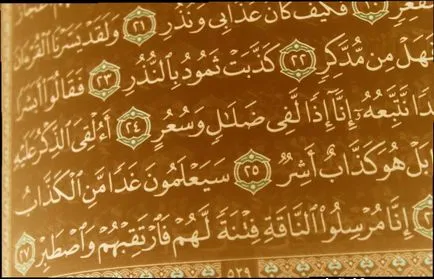 فَكَيْفَ كَانَ عَذَابِى وَنُذُرِ ٢١ وَلَقَدْ يَسَّرْنَا ٱلْقُرْءَانَ
هَلْ مِن مُّدَّكِرٍ ٢٢ كَذَّبَتْ ثَمُودُ بِٱلنُّذُرِ ٢٣ فَقَالُوٓا۟ أَبَشَرًا
دًا نَّتَّبِعُهُۥٓ إِنَّآ إِذًا لَّفِى ضَلَٰلٍ وَسُعُرٍ ٢٤ أَءُلْقِىَ ٱلذِّكْرُ عَلَيْهِ
بَلْ هُوَ كَذَّابٌ أَشِرٌ ٢٥ سَيَعْلَمُونَ غَدًا مَّنِ ٱلْكَذَّابُ
إِنَّا مُرْسِلُوا۟ ٱلنَّاقَةِ فِتْنَةً لَّهُمْ فَٱرْتَقِبْهُمْ وَٱصْطَبِرْ ٢٧
٥٢٩